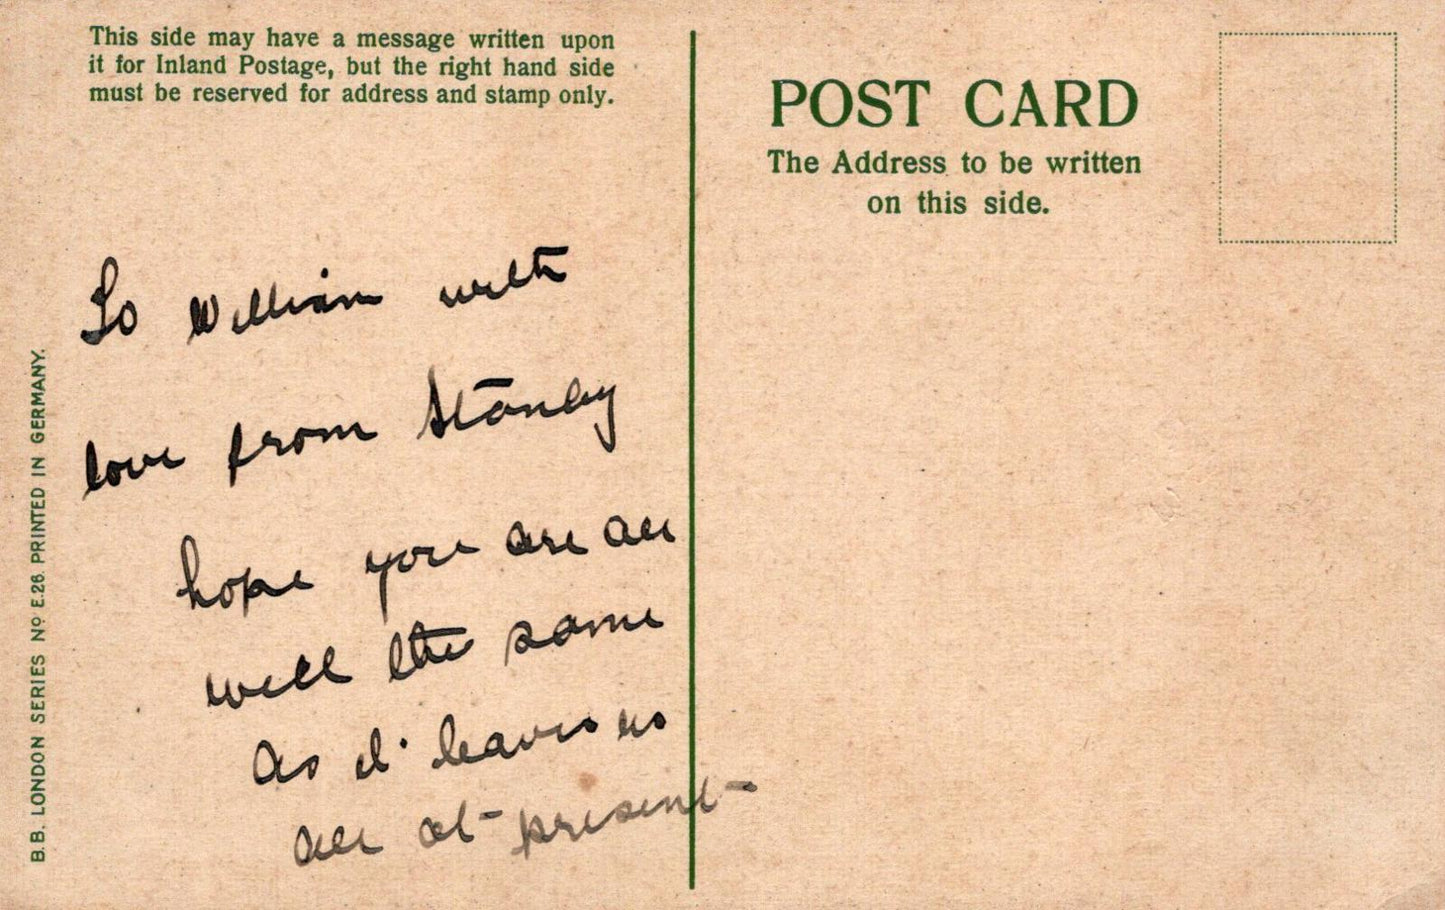 This side may have a message written upon
it for Inland Postage, but the right hand side
must be reserved for address and stamp only.
To William with
love from Stanley
hope you are all
well the same
as it leaves us
all at present
B.B. LONDON SERIES Nº E.26. PRINTED IN GERMANY.
POST CARD
The Address to be written
on this side.